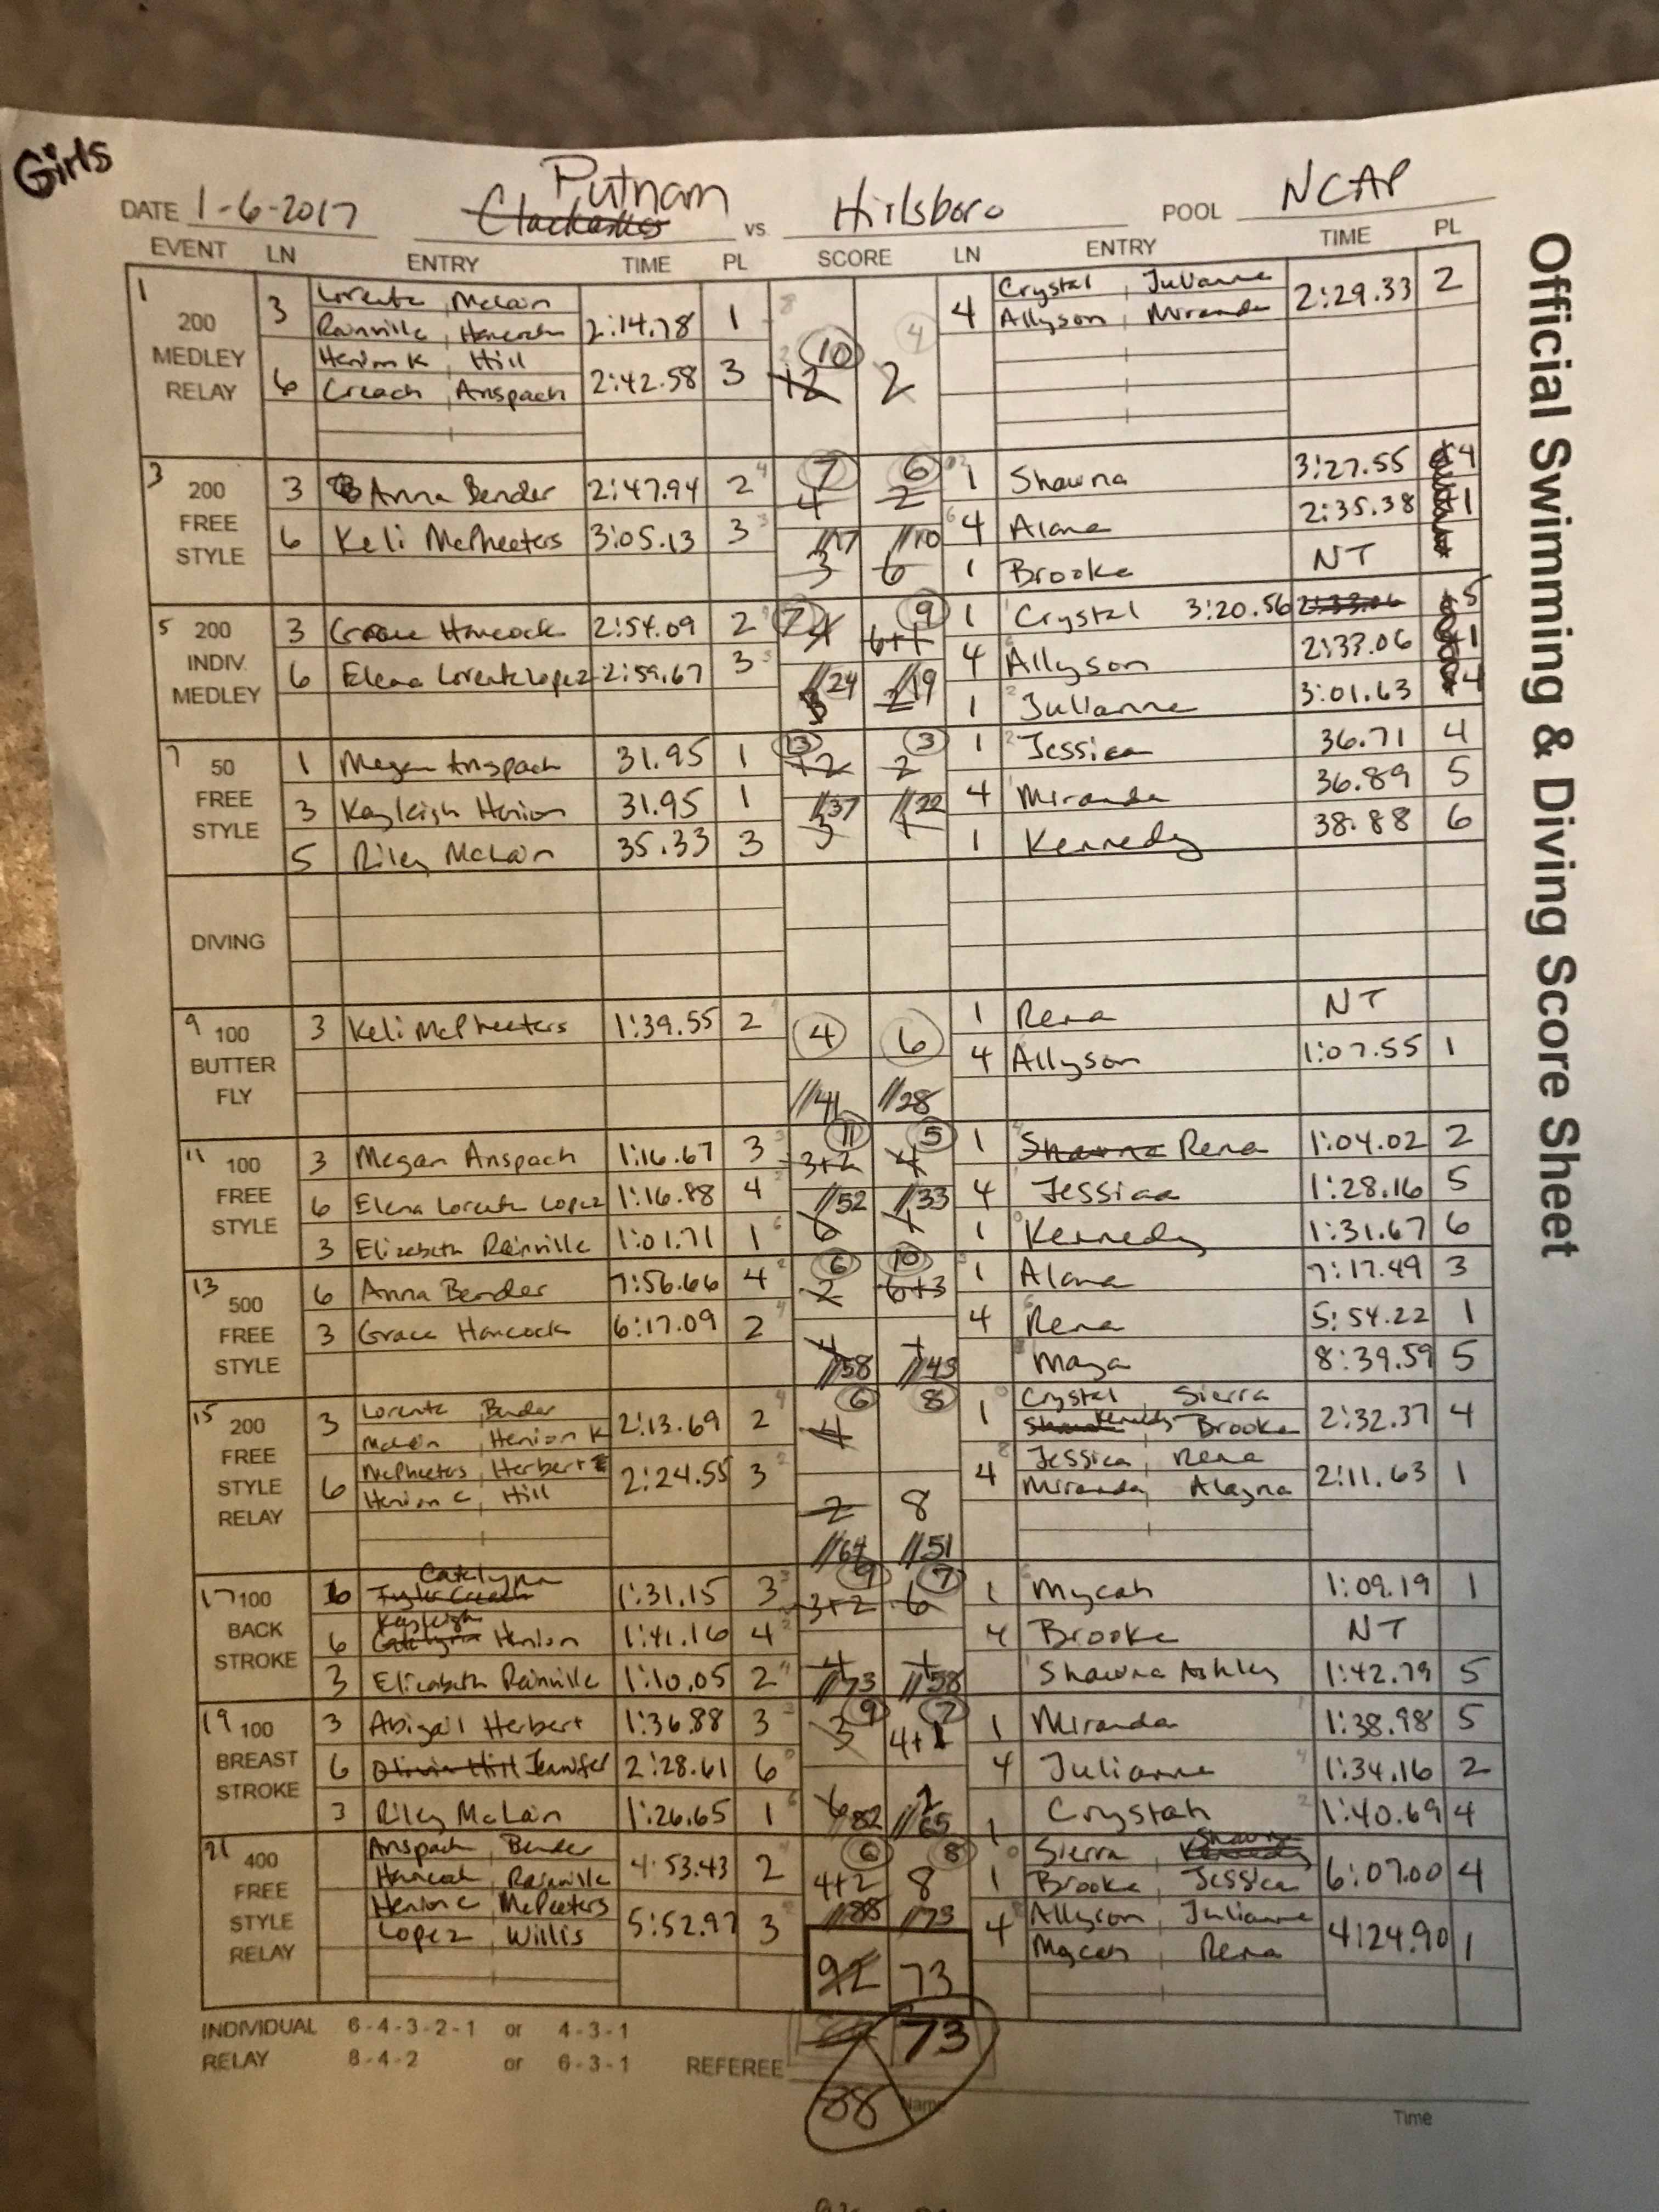 Girls
DATE 1-6-2017 Clackamas Putnam vs. Hillsboro POOL NCAP
EVENT LN ENTRY TIME PL SCORE LN ENTRY TIME PL
Official Swimming & Diving Score Sheet
1 200 MEDLEY RELAY
3 Lorente, McLain 2:14.78 1
Rainville, Hancock
6 Henion K, Hill 2:42.58 3
Creach, Anspach
8 2 10 12 4 2
4 Crystal, Julianne 2:29.33 2
Allyson, Miranda
3 200 FREE STYLE
3 Anna Bender 2:47.94 2 4
6 Keli McPheeters 3:05.13 3 3
7 4 //17 3
6 2 //10 6
1 Shawna 3:27.55 4
4 Alana 2:35.38 1
1 Brooke NT
5 200 INDIV. MEDLEY
3 Grace Hancock 2:54.09 2
6 Elena Lorente Lopez 2:59.67 3
7 4 //24 3
9 6+1 //19 2
1 Crystal 3:20.56 2:33.06 5
4 Allyson 2:33.06 1
1 Julianne 3:01.63 4
7 50 FREE STYLE
1 Megan Anspach 31.95 1
3 Kayleigh Henion 31.95 1
5 Riley McLain 35.33 3
13 12 //37 3
3 2 //22 1
1 Jessica 36.71 4
4 Miranda 36.89 5
1 Kennedy 38.88 6
DIVING
9 100 BUTTER FLY
3 Keli McPheeters 1:39.55 2
4 //41
6 //28
1 Rena NT
4 Allyson 1:07.55 1
11 100 FREE STYLE
3 Megan Anspach 1:16.67 3
6 Elena Lorente Lopez 1:16.88 4
3 Elizabeth Rainville 1:01.71 1
11 3+2 //52 6
5 4 //33 1
1 Shawna Rena 1:04.02 2
4 Jessica 1:28.16 5
1 Kennedy 1:31.67 6
13 500 FREE STYLE
6 Anna Bender 7:56.66 4
3 Grace Hancock 6:17.09 2
6 2 4 //58
10 6+3 1 //43
1 Alana 7:17.49 3
4 Rena 5:54.22 1
Maya 8:39.59 5
15 200 FREE STYLE RELAY
3 Lorente, Bender 2:13.69 2
McLain, Henion K
6 McPheeters, Herbert 2:24.55 3
Henion C, Hill
6 4 2 //64
8 8 //51
1 Crystal, Sierra 2:32.37 4
Kennedy, Brooke
4 Jessica, Rena 2:11.63 1
Miranda, Alayna
17 100 BACK STROKE
6 Catelynn 1:31.15 3
6 Kayleigh Henion 1:41.16 4
3 Elizabeth Rainville 1:10.05 2
9 3+2 4 //73
7 6 1 //58
1 Mycah 1:09.19 1
4 Brooke NT
Shawna Ashley 1:42.79 5
19 100 BREAST STROKE
3 Abigail Herbert 1:36.88 3
6 Olivia Hill Jennifer 2:28.61 6
3 Riley McLain 1:26.65 1
9 3 6 //82
7 4+1 2 //65
1 Miranda 1:38.98 5
4 Julianne 1:34.16 2
1 Crystah 1:40.69 4
21 400 FREE STYLE RELAY
Anspach, Bender 4:53.43 2
Hancock, Rainville
Henion C, McPeeters 5:52.97 3
Lopez, Willis
6 4+2 //88
8 8 //73
1 Sierra, Shawna Kennedy 6:07.00 4
Brooke, Jessica
4 Allyson, Julianne 4:24.90 1
Mycah, Rena
92 73
INDIVIDUAL 6-4-3-2-1 or 4-3-1
RELAY 8-4-2 or 6-3-1 REFEREE
73
88
Name Time